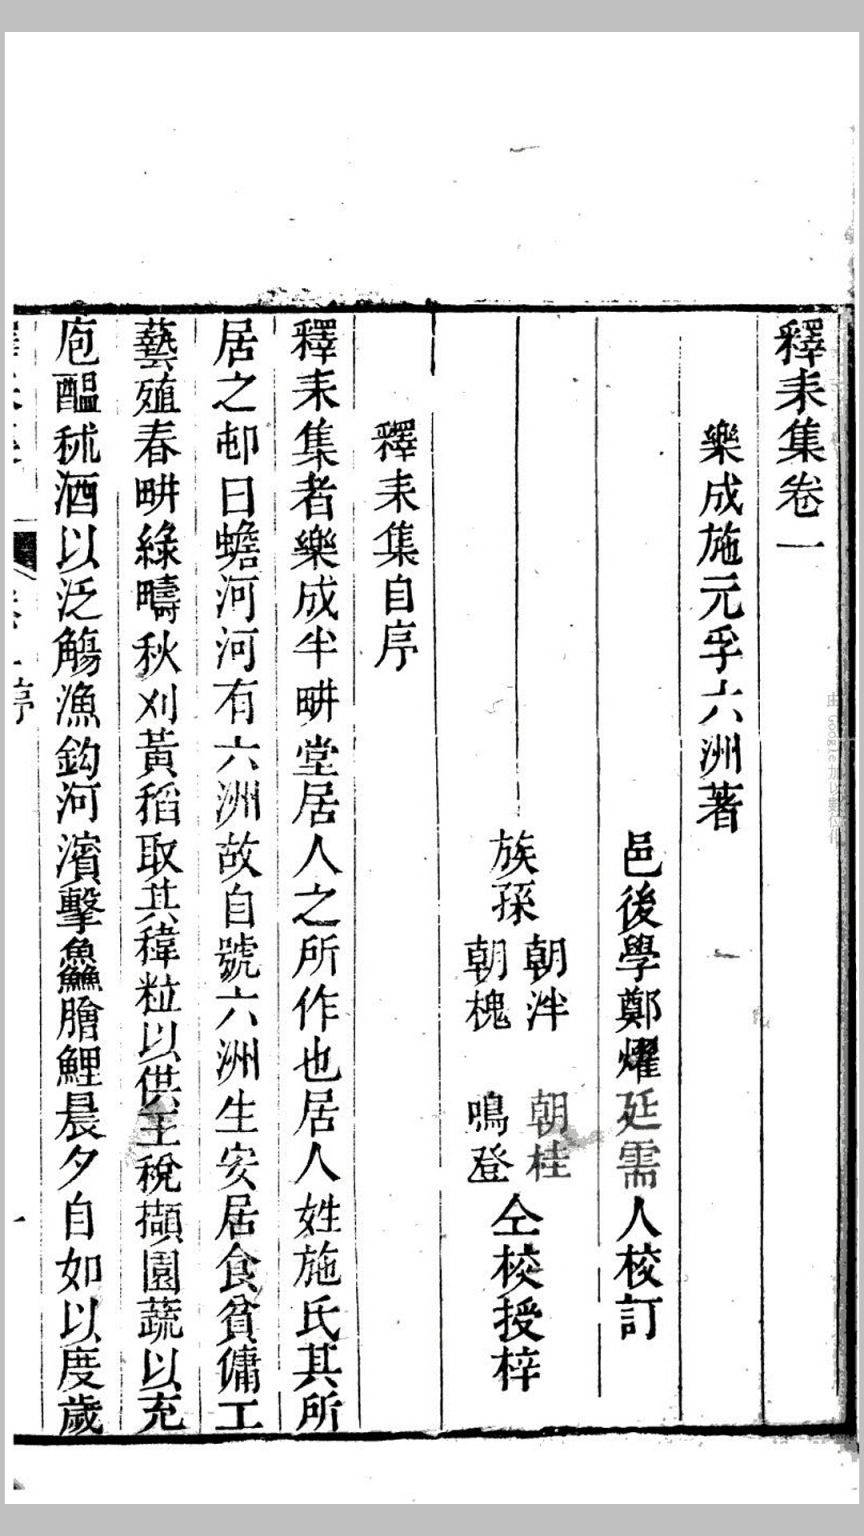 釋耒集卷一
樂成施元孚六洲著
邑後學鄭燿廷需人校訂
族孫 朝泮 朝桂 朝槐 鳴登 仝校授梓
釋耒集自序
釋耒集者樂成半畊堂居人之所作也居人姓施氏其所
居之邨曰蟾河河有六洲故自號六洲生安居食貧傭工
藝殖春畊綠疇秋刈黃稻取其稺粒以供王稅擷園蔬以充
庖醖秫酒以泛觴漁鈎河濱擊鱻膾鯉晨夕自如以度歲